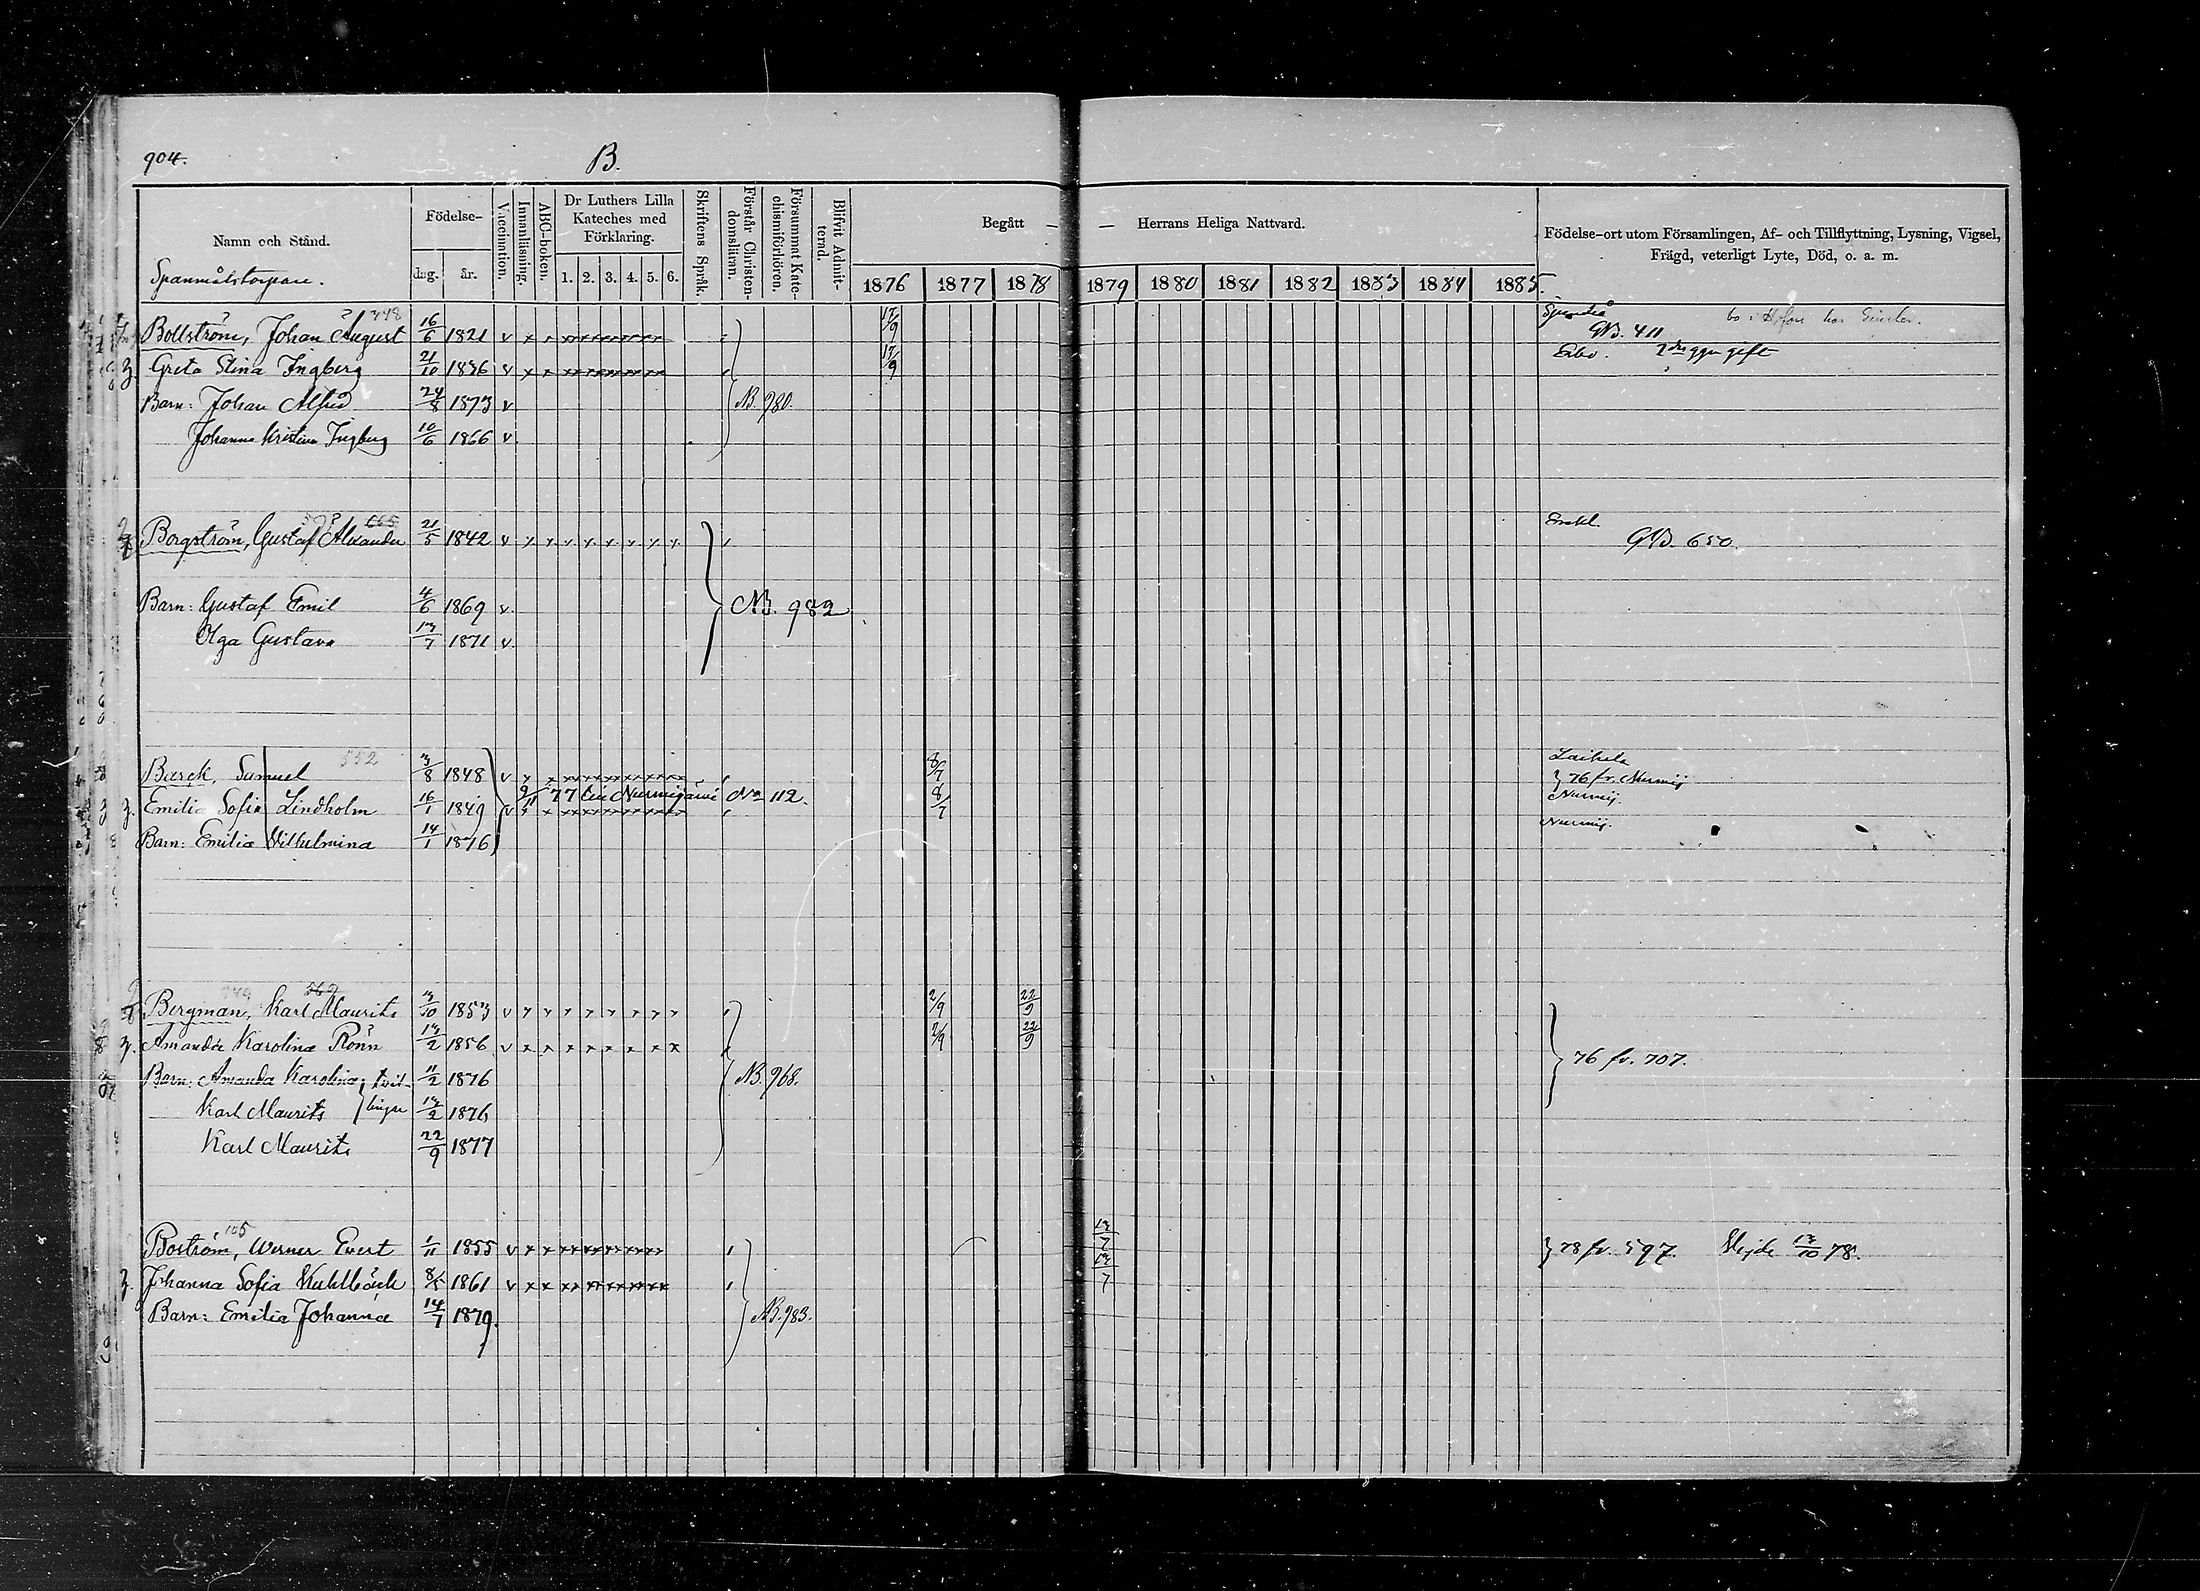 904.
B.
Namn och Stånd.
Födelse-
dag. år.
Vaccination.
Innanläsning.
ABC-boken.
Dr Luthers Lilla
Kateches med
Förklaring.
1. 2. 3. 4. 5. 6.
Skriftens Språk.
Förstår Christen-
domsläran.
Försummat Kate-
chismiförhören.
Blifvit Admit-
terad.
Begått —
— Herrans Heliga Nattvard.
1876 1877 1878 1879 1880 1881 1882 1883 1884 1885.
Födelse-ort utom Församlingen, Af- och Tillflyttning, Lysning, Vigsel,
Frägd, veterligt Lyte, Död, o. a. m.
348
Bollström, Johan August 16/6 1821 v 17/9
QB. 411
Greta Stina Ingberg 21/10 1836 v 17/9
Barn: Johan Alfred 24/8 1873 v NB. 980.
Johanna Kristina Ingberg 10/6 1866 v
665
Borgström, Gustaf Alexander 21/5 1842 v
QB. 650.
Barn: Gustaf Emil 4/6 1869 v. NB. 982
Olga Gustava 13/7 1871 v
552
Barck, Samuel 3/8 1848 v 8/7 Laihela
76 fr. Nurmij
9/11 77 till Nurmijärvi No 112.
Emilia Sofia Lindholm 16/1 1849 v 8/7 Nurmij.
Barn: Emilia Vilhelmina 14/1 1876 Nurmij.
569
Bergman, Karl Maurits 3/10 1853 v 2/9 22/9
Amanda Karolina Rönn 13/2 1856 v 2/9 22/9
76 fr. 707.
Barn: Amanda Karolina tvil- 11/2 1876 NB. 968.
Karl Maurits lingar 13/2 1876
Karl Maurits 22/9 1877
105
Boström, Werner Evert 1/11 1855 v 13/7
78 fr. 597. Vigde 13/10 78.
Johanna Sofia Kuhlbäck 8/5 1861 v 13/7
Barn: Emilia Johanna 14/7 1879. NB. 983.